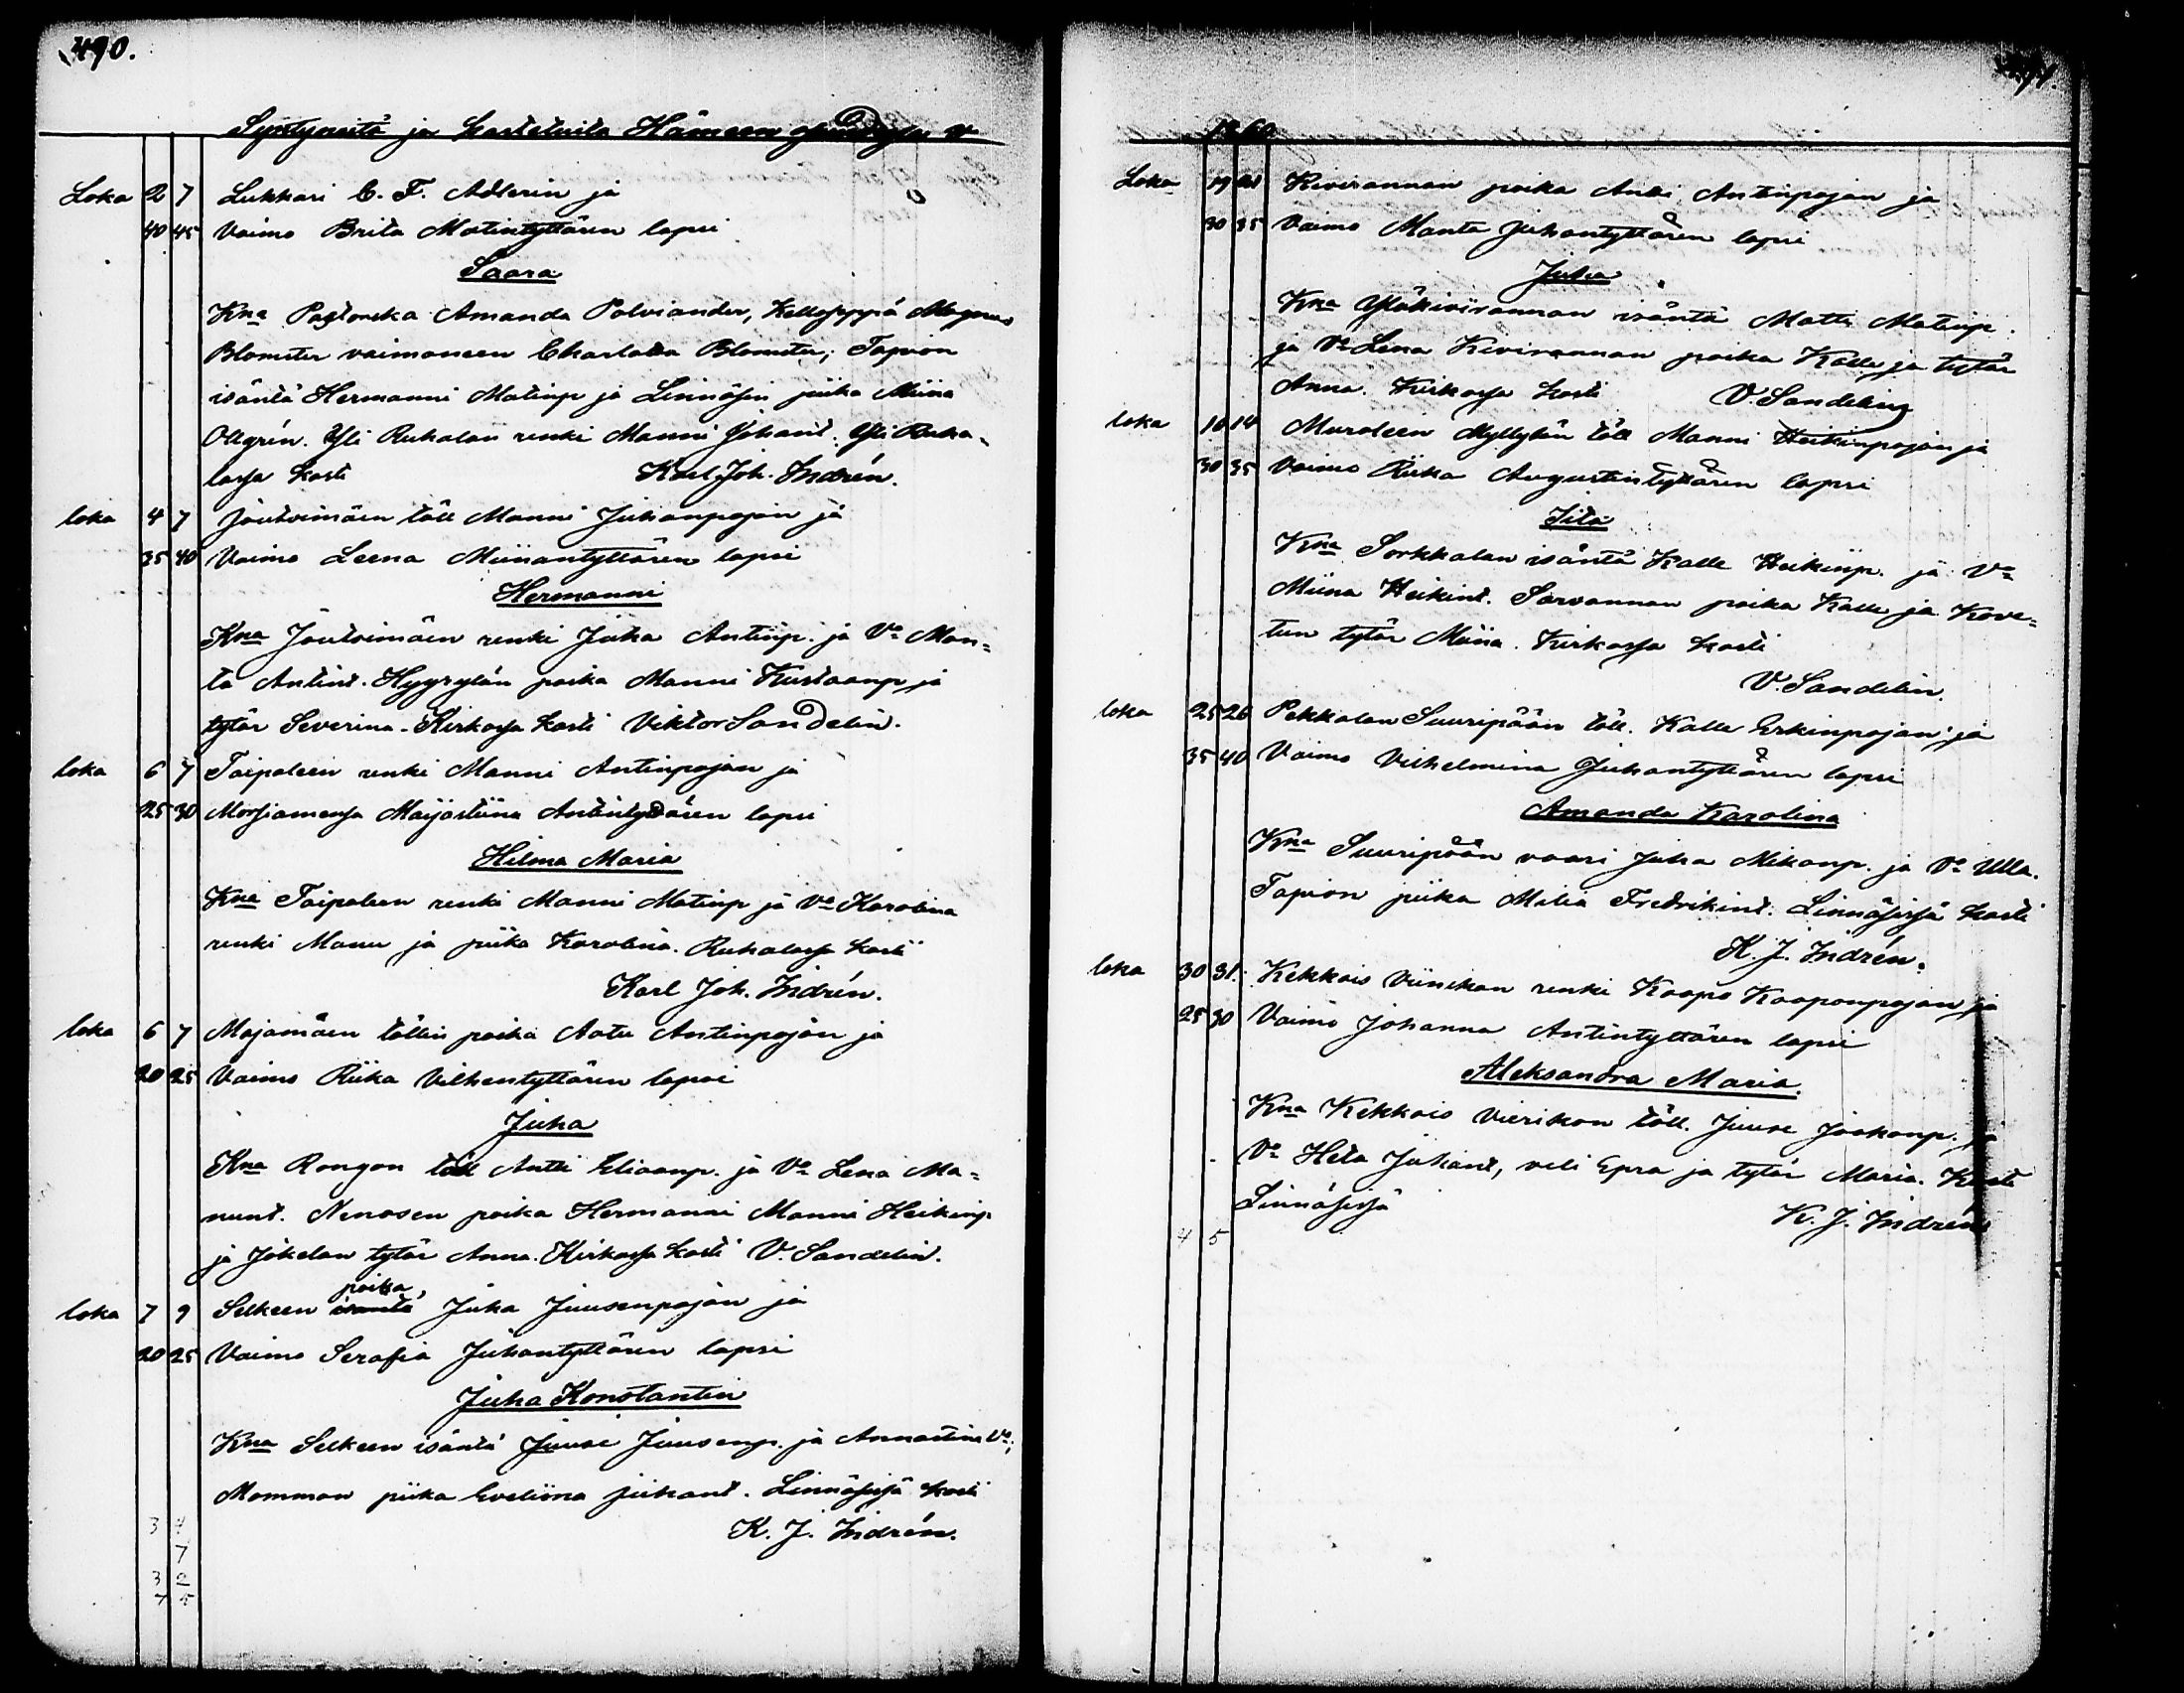 490.
Syntyneitä ja kastetuita Hämeen v
Loka 2 7 Lukkari C. F. Adlerin ja
40 45 Vaimo Brita Matintyttären lapsi
Saara
Kna Pastorska Amanda Polviander, Magnus
Blomster vaimoneen Blomster, Tapion
isäntä Hermanni Matinp ja Linnäsin piika Miina
Ollgrén. Yli Ruhalan renki Manni Johant. Yli Ruha-
lassa kasti Karl Joh. Indrén.
loka 4 7 Joutsimäen töll Manni Juhanpojan ja
35 40 Vaimo Leena Miinantyttären lapsi
Hermanni
Kna Joutsimäen renki Juha Antinp. ja Vo Man-
ta Antint. Hyyrylän poika Manni Kustaanp ja
tytär Severina. Kirkossa kasti Viktor Sandelin.
loka 6 7 Taipaleen renki Manni Antinpojan ja
25 30 Morsiamensa Maijastiina Antintyttären lapsi
Hilma Maria
Kna Taipaleen renki Manni Matinp ja Vo Karolina
renki Manu ja piika Karolina. Ruhalassa kasti
Karl Joh. Indrén.
loka 6 7 Majamäen töllin poika Aatu Antinpojan ja
20 25 Vaimo Riika Vilhentyttären lapsi
Juha
Kna Rongon töll Antti Eliaanp. ja Vo Lena Ma-
nunt. Nenosen poika Hermanni Manni Heikinp
ja Jokelan tytär Anna. Kirkossa kasti V. Sandelin.
poika,
loka 7 9 Selkeen isäntä Juha Juusenpojan ja
20 25 Vaimo Serafia Juhantyttären lapsi
Juha Konstantin
Kna Selkeen isäntä Juuse Juusenp. ja Annastina Vo;
Momman piika Eveliina Juhant. Linnäsissä kasti
K. J. Indrén.
3 4
7
3 2
7 5
1860
Loka 19 21 Kivirannan poika Antti Antinpojan ja
30 35 Vaimo Manta Juhantyttären lapsi
Juha
Kna Yläkivirannan isäntä Matti Matinp.
ja Vo Lena Kivirannan poika Kalle ja tytär
Anna. Kirkossa kasti V. Sandelin
loka 10 14 Muroleen Myllytön töll Manni Heikinpojan ja
30 35 Vaimo Riika Augustintyttären lapsi
Iita
Kna Sorkkalan isäntä Kalle Heikinp. ja Vo
Miina Heikint. Sarvannan poika Kalle ja Kove-
tun tytär Miina. Kirkossa kasti
V. Sandelin.
loka 25 26 Pekkalan Suuripään töll. Kalle Erkinpojan ja
35 40 Vaimo Vilhelmina Juhantyttären lapsi
Amanda Karolina
Kna Suuripään vaari Juha Mikonp. ja Vo Ulla.
Tapion piika Milia Fredrikint. Linnäsissä kasti
K. J. Indrén.
loka 30 31. Kekkois Viinikan renki Kaapo Kaaponpojan ja
25 30 Vaimo Johanna Antintyttären lapsi
Aleksandra Maria.
Kna Kekkois töll. Juuse Jaakonp. ja
Vo Heta Juhant, veli Epra ja tytär Maria. Kasti
Linnäsissä K. J. Indrén
4 5